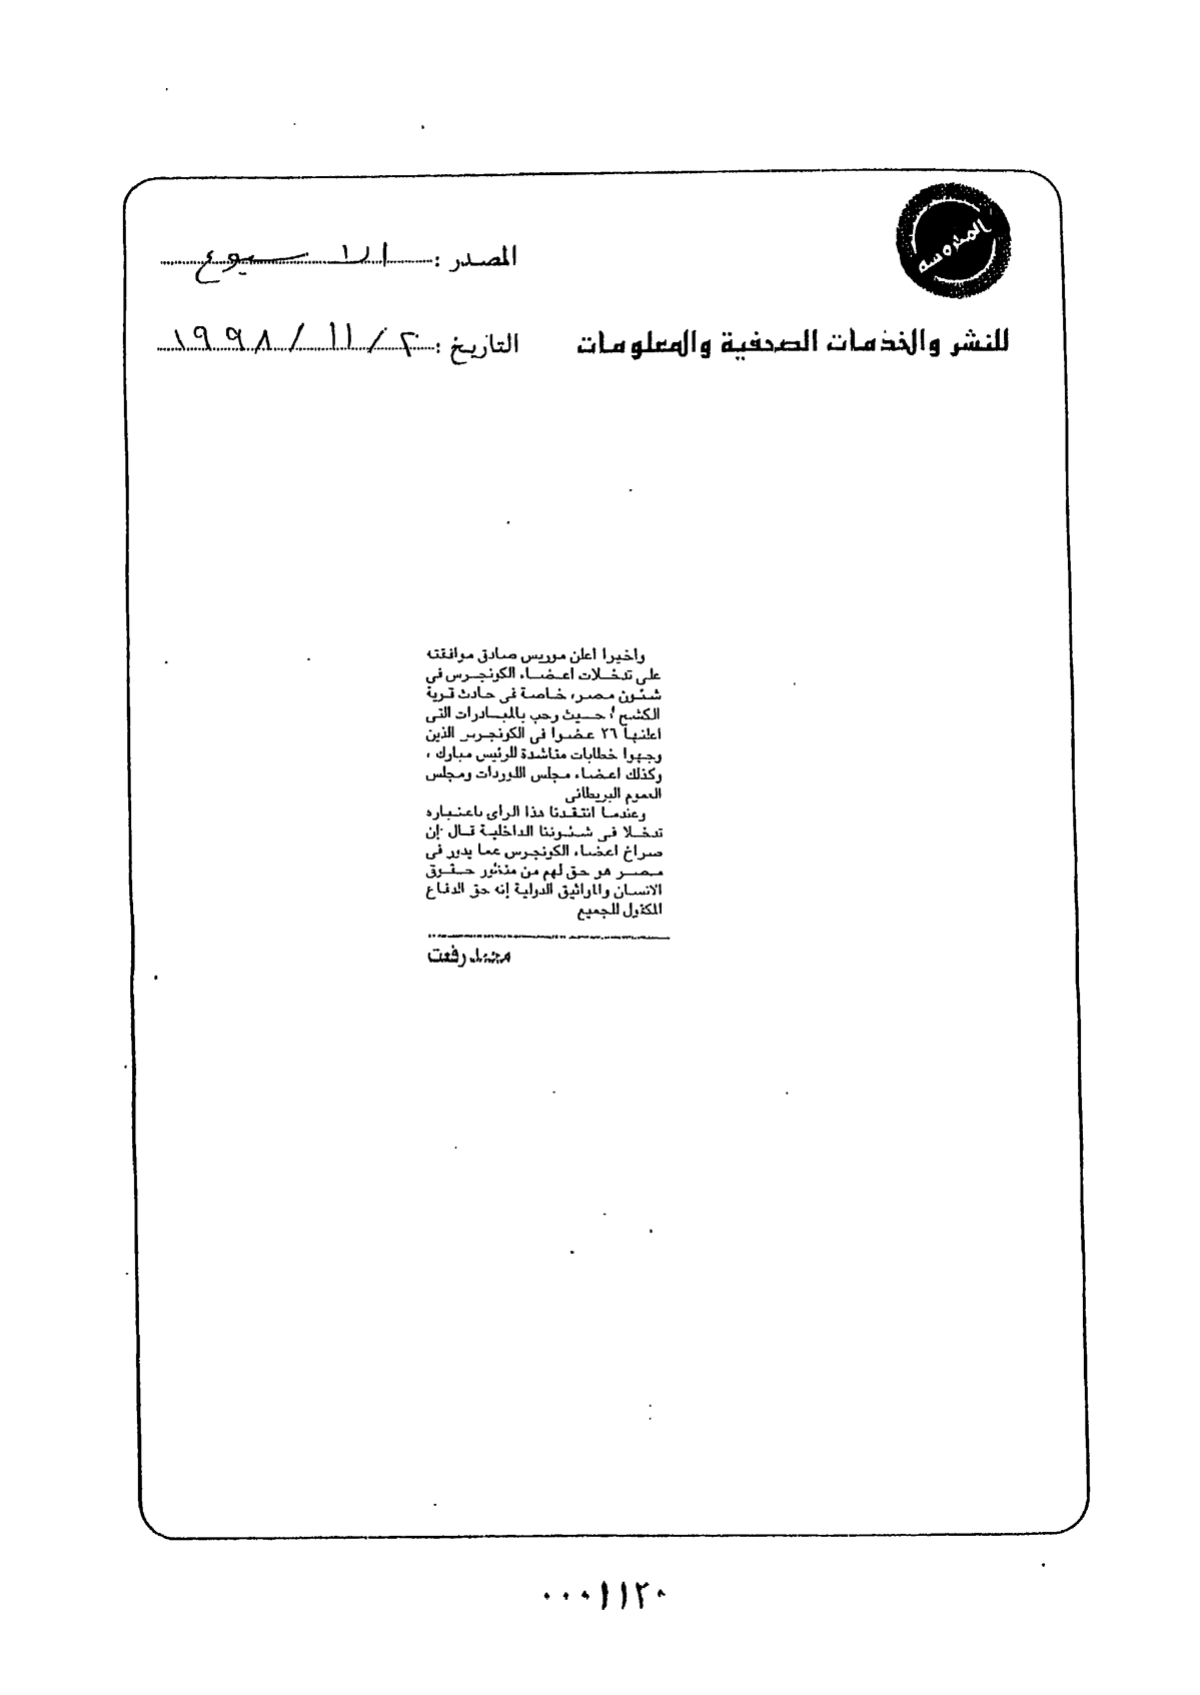 المحروسة
المصدر : الاسبوع
للنشر والخذمات الصحفية والمعلومات
التاريخ : ٢ / ١١ / ١٩٩٨
وأخيرا أعلن موريس صادق موافقته
على تدخلات أعضاء الكونجرس فى
شئون مصر، خاصة فى حادث قرية
الكشح ! حيث رحب بالمبادرات التى
أعلنها ٢٦ عضوا فى الكونجرس الذين
وجهوا خطابات مناشدة للرئيس مبارك ،
وكذلك اعضاء مجلس اللوردات ومجلس
العموم البريطانى
وعندما انتقدنا هذا الرأى باعتباره
تدخلا فى شئوننا الداخلية قال إن
صراخ اعضاء الكونجرس عما يدور فى
مصر هو حق لهم من منظور حقوق
الانسان والمواثيق الدولية إنه حق الدفاع
المكفول للجميع
محمد رفعت
٠٠٠١١٢٠